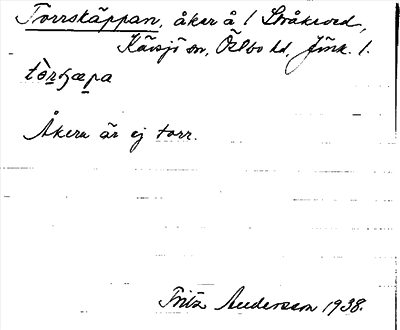 Torrskäppan, åker å 1 Stråkeved,
Kävsjö sn, Östbo hd, Jönk. l.
Åkern är ej torr.
Fritz Andersson 1938.